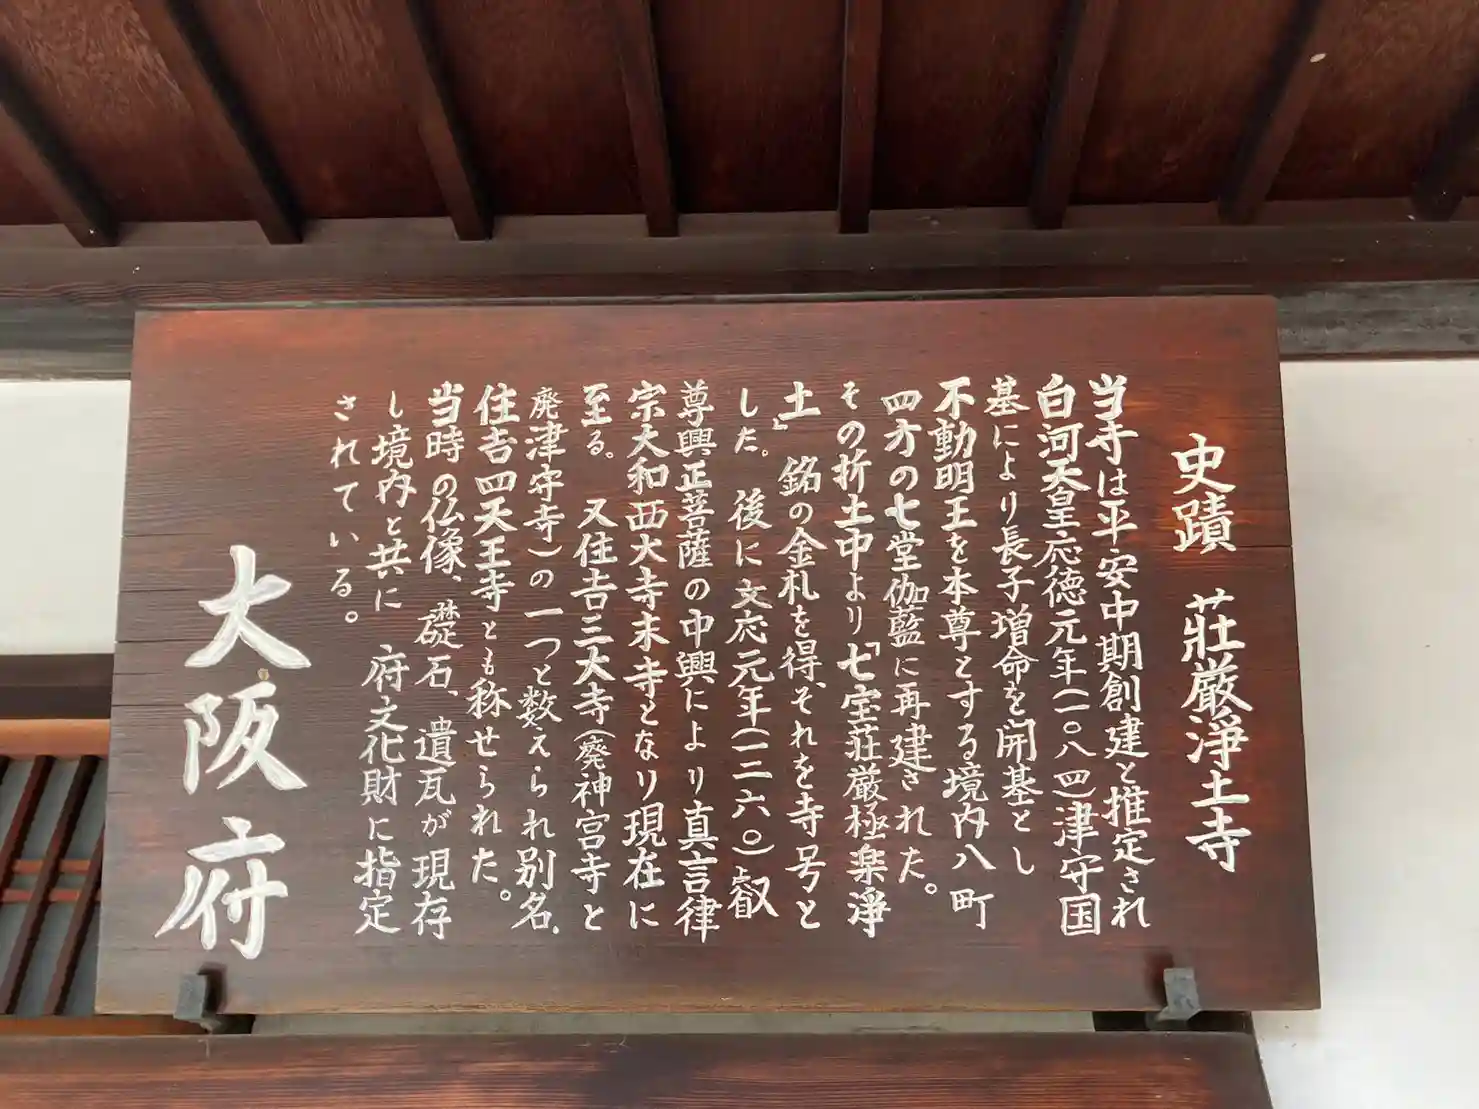 史蹟　荘厳浄土寺
当寺は平安中期創建と推定され
白河天皇応徳元年(一〇八四)津守国
基により長子増命を開基とし
不動明王を本尊とする境内八町
四方の七堂伽藍に再建された。
その折土中より「七宝荘厳極楽浄
土」銘の金札を得、それを寺号と
した。後に文応元年(一二六〇)叡
尊興正菩薩の中興により真言律
宗大和西大寺末寺となり現在に
至る。又住吉三大寺(廃神宮寺と
廃津守寺)の一つと数えられ別名、
住吉四天王寺とも称せられた。
当時の仏像、礎石、遺瓦が現存
し境内と共に府文化財に指定
されている。
大阪府